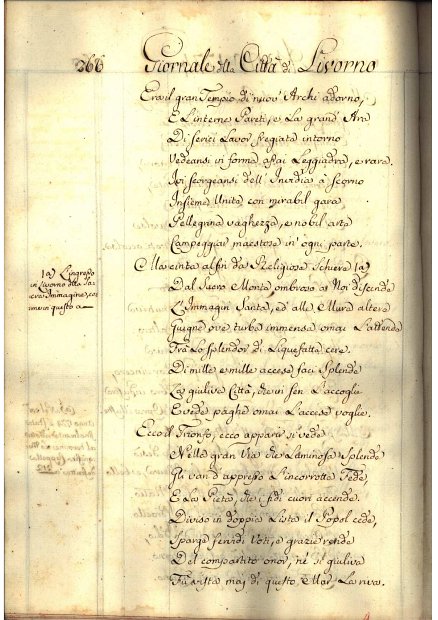 366
Giornale della Città di Livorno
Era il gran Tempio di nuovi Archi adorno,
E L'interne Pareti, e La grand' Ara
Di serici Lavor fregiata intorno
Vedeansi in forma assai Leggiadra, e rara.
Ivi scorgeansi dell' Invidia à scorno
Insieme Unita con mirabil gara
Pellegrina vaghezza, e nobil arte
Campeggiar maestosa in' ogni parte.
Ma cinta alfin da Religiosa Schiera (a)
Dal Sacro Monte ombroso a Noi discende
L'Immagin Santa, ed' alle Mura altere
Giugne ove turba immensa omai L'attende
Frà Lo splendor di Liquefatta cere.
Di mille, e mille accese faci Splende
La giuliva Città, che in sen L'accoglie
E vede paghe omai L'accese voglie.
Ecco il Trionfo, ecco apparir si vede
Nella gran Via Luminosa Splende
Gli van d'appresso L'incorrotta Fede,
E La Pietà, che i fidi cuori accende.
Diviso in doppia Lista il Popol cede,
Sparge fervidi Voti, e grazie rende
Del compartito onor, nè sì giuliva
Fù vista mai di questo Mar La riva.
(a) L'ingresso
in Livorno della Sa-
cra Immagine, co-
me in questo a